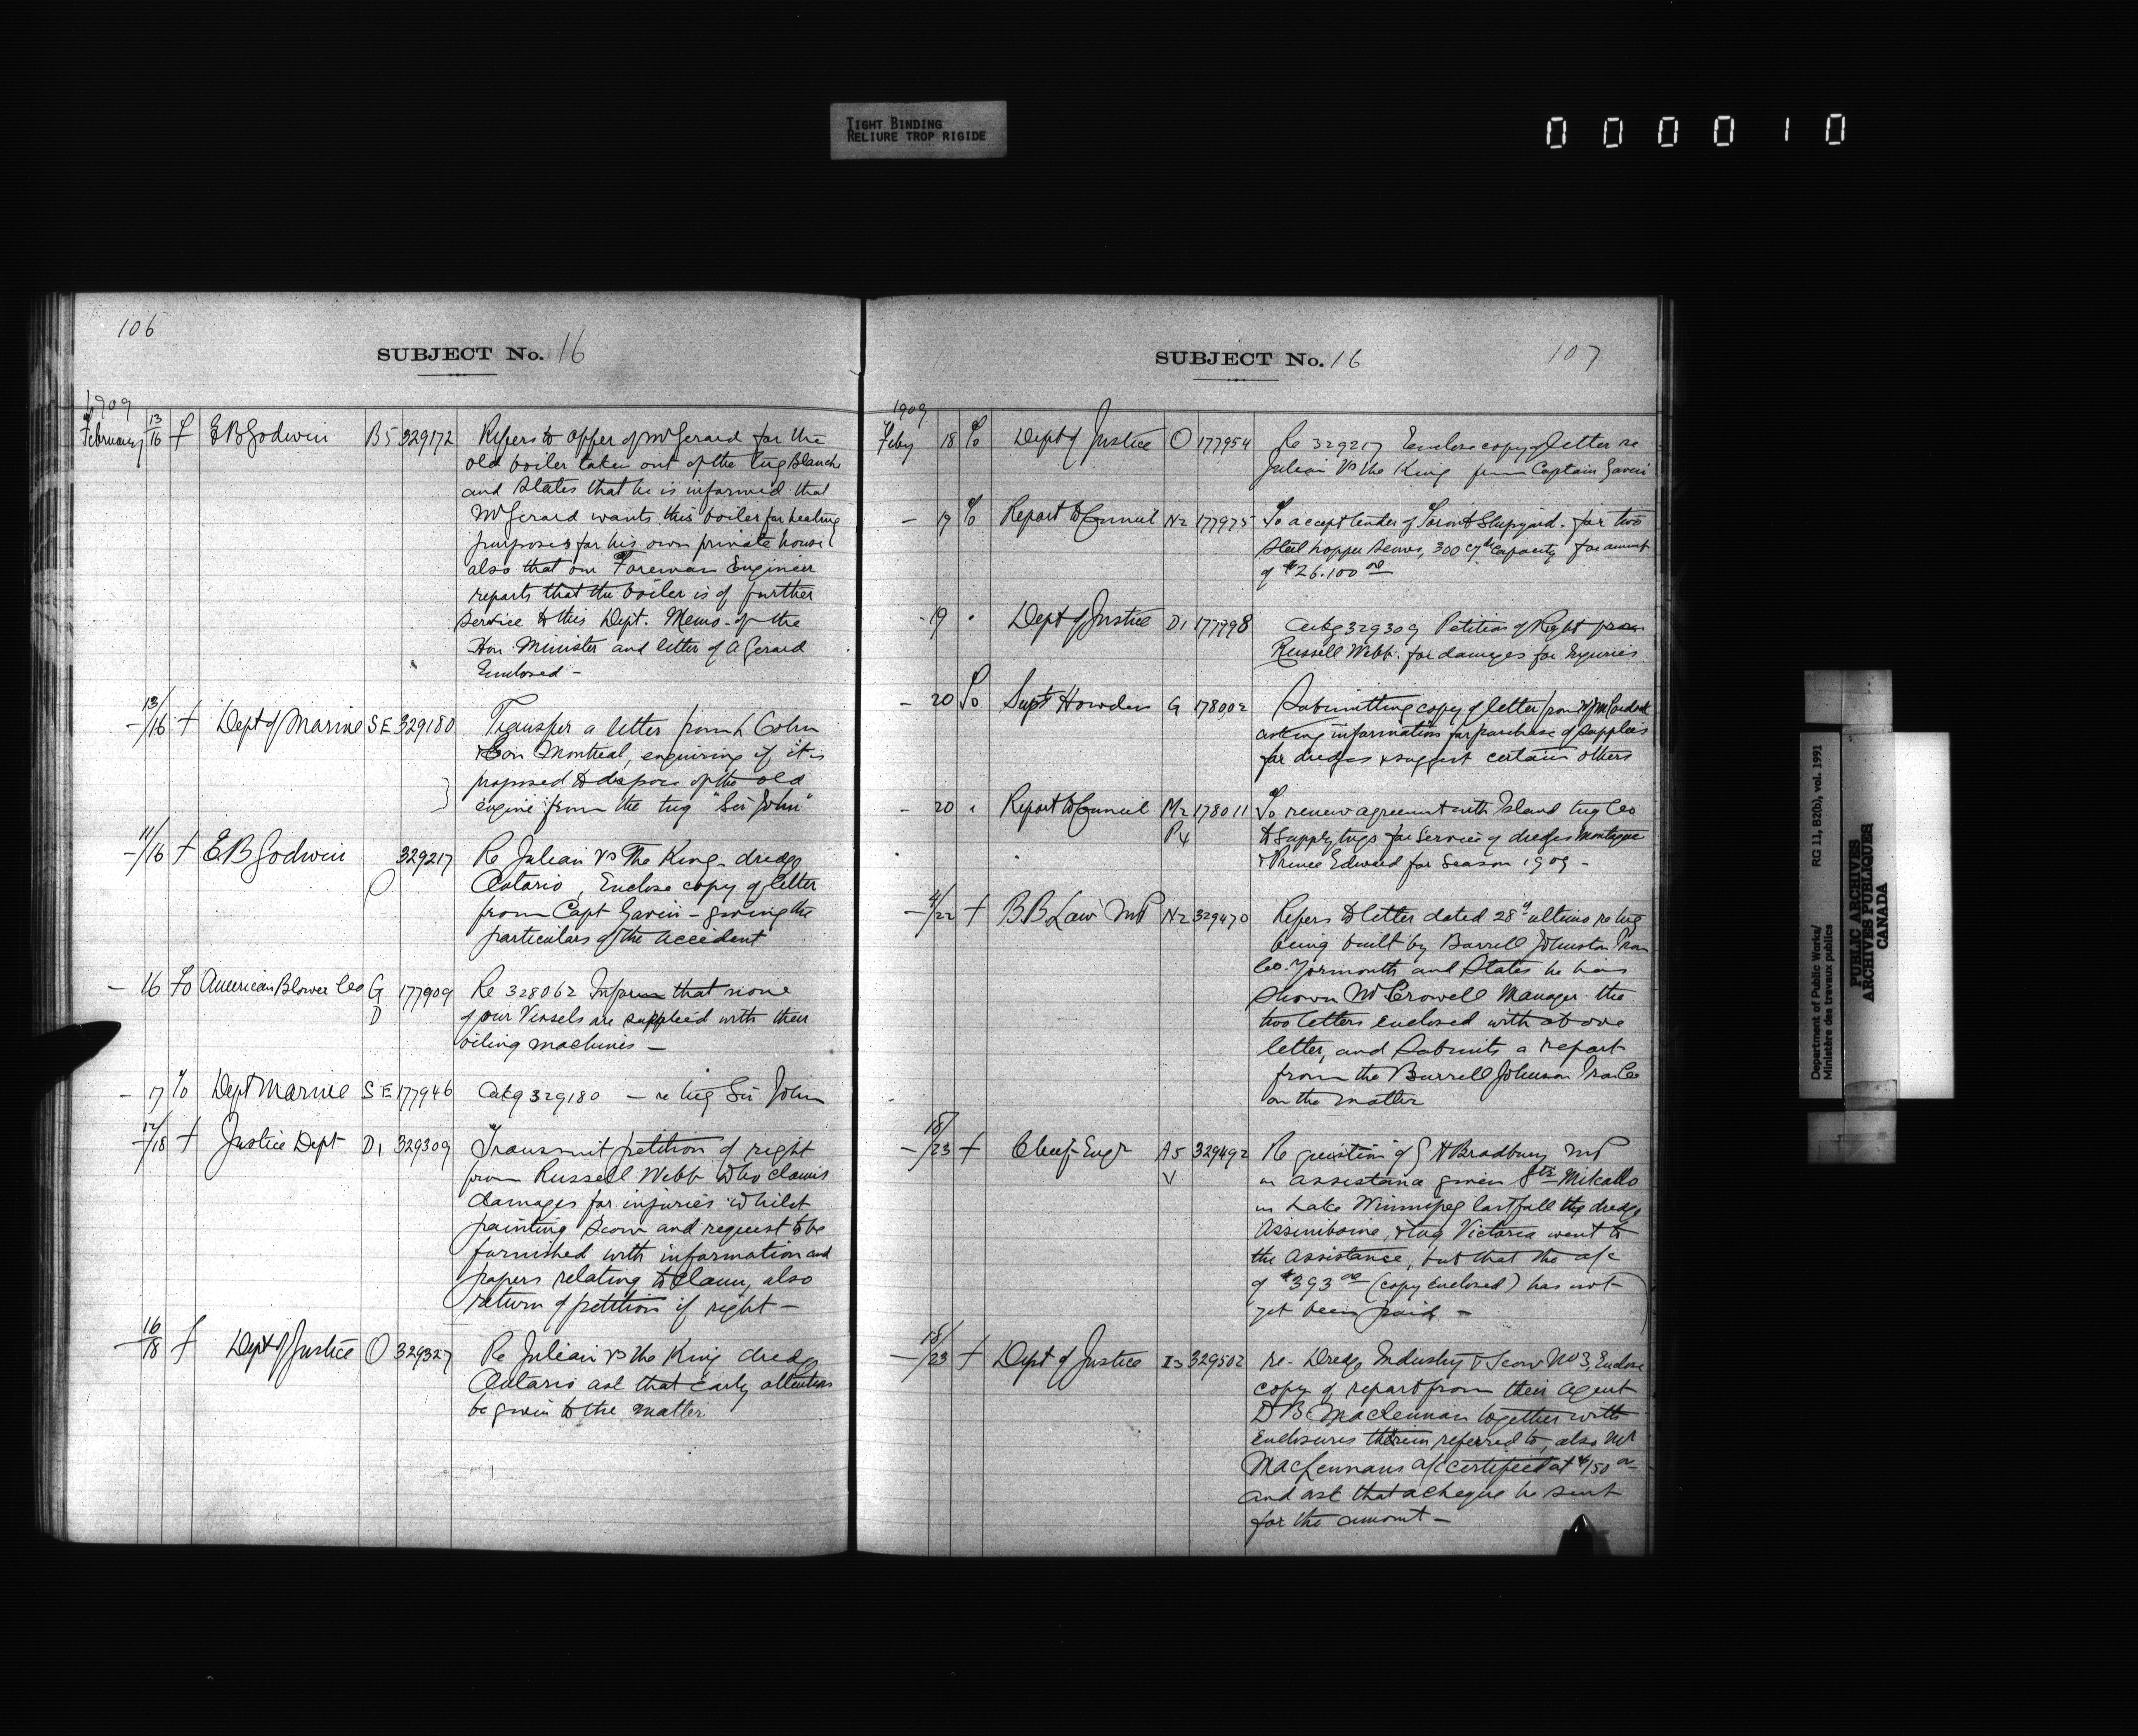 TIGHT BINDING
RELIURE TROP RIGIDE
000010
106
SUBJECT No. 16
1909
February 13/16 f E B Godwin B5 329172 Refers to offer of Mr Gerard for the
old boiler taken out of the tug Blanche
and states that he is informed that
Mr Gerard wants this boiler for heating
purposes for his own private house
also that our Foreman Engineer
reports that the boiler is of further
service to this Dept. Memo of the
Hon Minister and letter of A Gerard
Enclosed -
- 13/16 f Dept of Marine SE 329180 Transfer a letter from L Cohn
Montreal, enquiring if it is
proposed to dispose of the old
engine from the tug "Sir John"
- 11/16 f E B Godwin O 329217 Re Julien vs The King - dredge
Ontario, Enclose copy of letter
from Capt Gavin - giving the
particulars of the accident
- 16 To American Blower Co G D 177909 Re 328062 Inform that none
of our Vessels are supplied with their
oiling machines -
- 17 To Dept Marine SE 177946 Ackg 329180 - re tug Sir John
- 12/18 f Justice Dept D1 329309 Transmit petition of right
from Russell Webb who claims
damages for injuries whilst
painting scow and request to be
furnished with information and
papers relating to claim, also
return of petition if right -
- 16/18 f Dept of Justice O 329327 Re Julien vs the King dredge
Ontario ask that early attention
be given to the matter
SUBJECT No. 16
107
1909
Feby 18 To Dept of Justice O 177954 Re 329217 Enclose copy of letter re
Julien vs the King from Captain Gavin
- 19 To Report to Council N2 177975 To accept tender of Toronto Shipyard for two
steel hopper scows, 300 cy capacity for amount
of $26.100 00
- 19 " Dept of Justice D1 177998 Ackg 329309 Petition of Right from
Russell Webb for damages for Injuries
- 20 To Supt Howden G 178002 Submitting copy of letter from
asking information for purchase of supplies
for dredges & suggest certain others
- 20 " Report to Council M2 P4 178011 To renew agreement with Island tug Co
to supply tugs for service of dredges Montague
& Prince Edward for season 1909 -
- 4/22 f B B Law MP N2 329470 Refers to letter dated 28th ultimo re tug
being built by Burrell Johnston Iron
Co. Yarmouth and states he has
shown Mr Crowell Manager the
two letters enclosed with above
letter, and submits a report
from the Burrell Johnson Iron Co
on the matter
- 18/23 f Chief Engr A5 V 329492 Re question of G H Bradbury MP
on assistance given Str Mikado
in Lake Winnipeg last fall the dredge
Assiniboine, & tug Victoria went to
the assistance, but that the a/c
of $393 00 (copy enclosed) has not
yet been paid -
- 18/23 f Dept of Justice I3 329502 re - Dredge Industry & Scow No 3, Enclose
copy of report from their agent
D B MacLennan together with
Enclosures therein referred to, also Mr
MacLennans a/c certified at $150 00
and ask that a cheque be sent
for the amount -
Department of Public Works/ RG 11, B2(b), vol. 1991
Ministère des travaux publics
PUBLIC ARCHIVES
ARCHIVES PUBLIQUES
CANADA